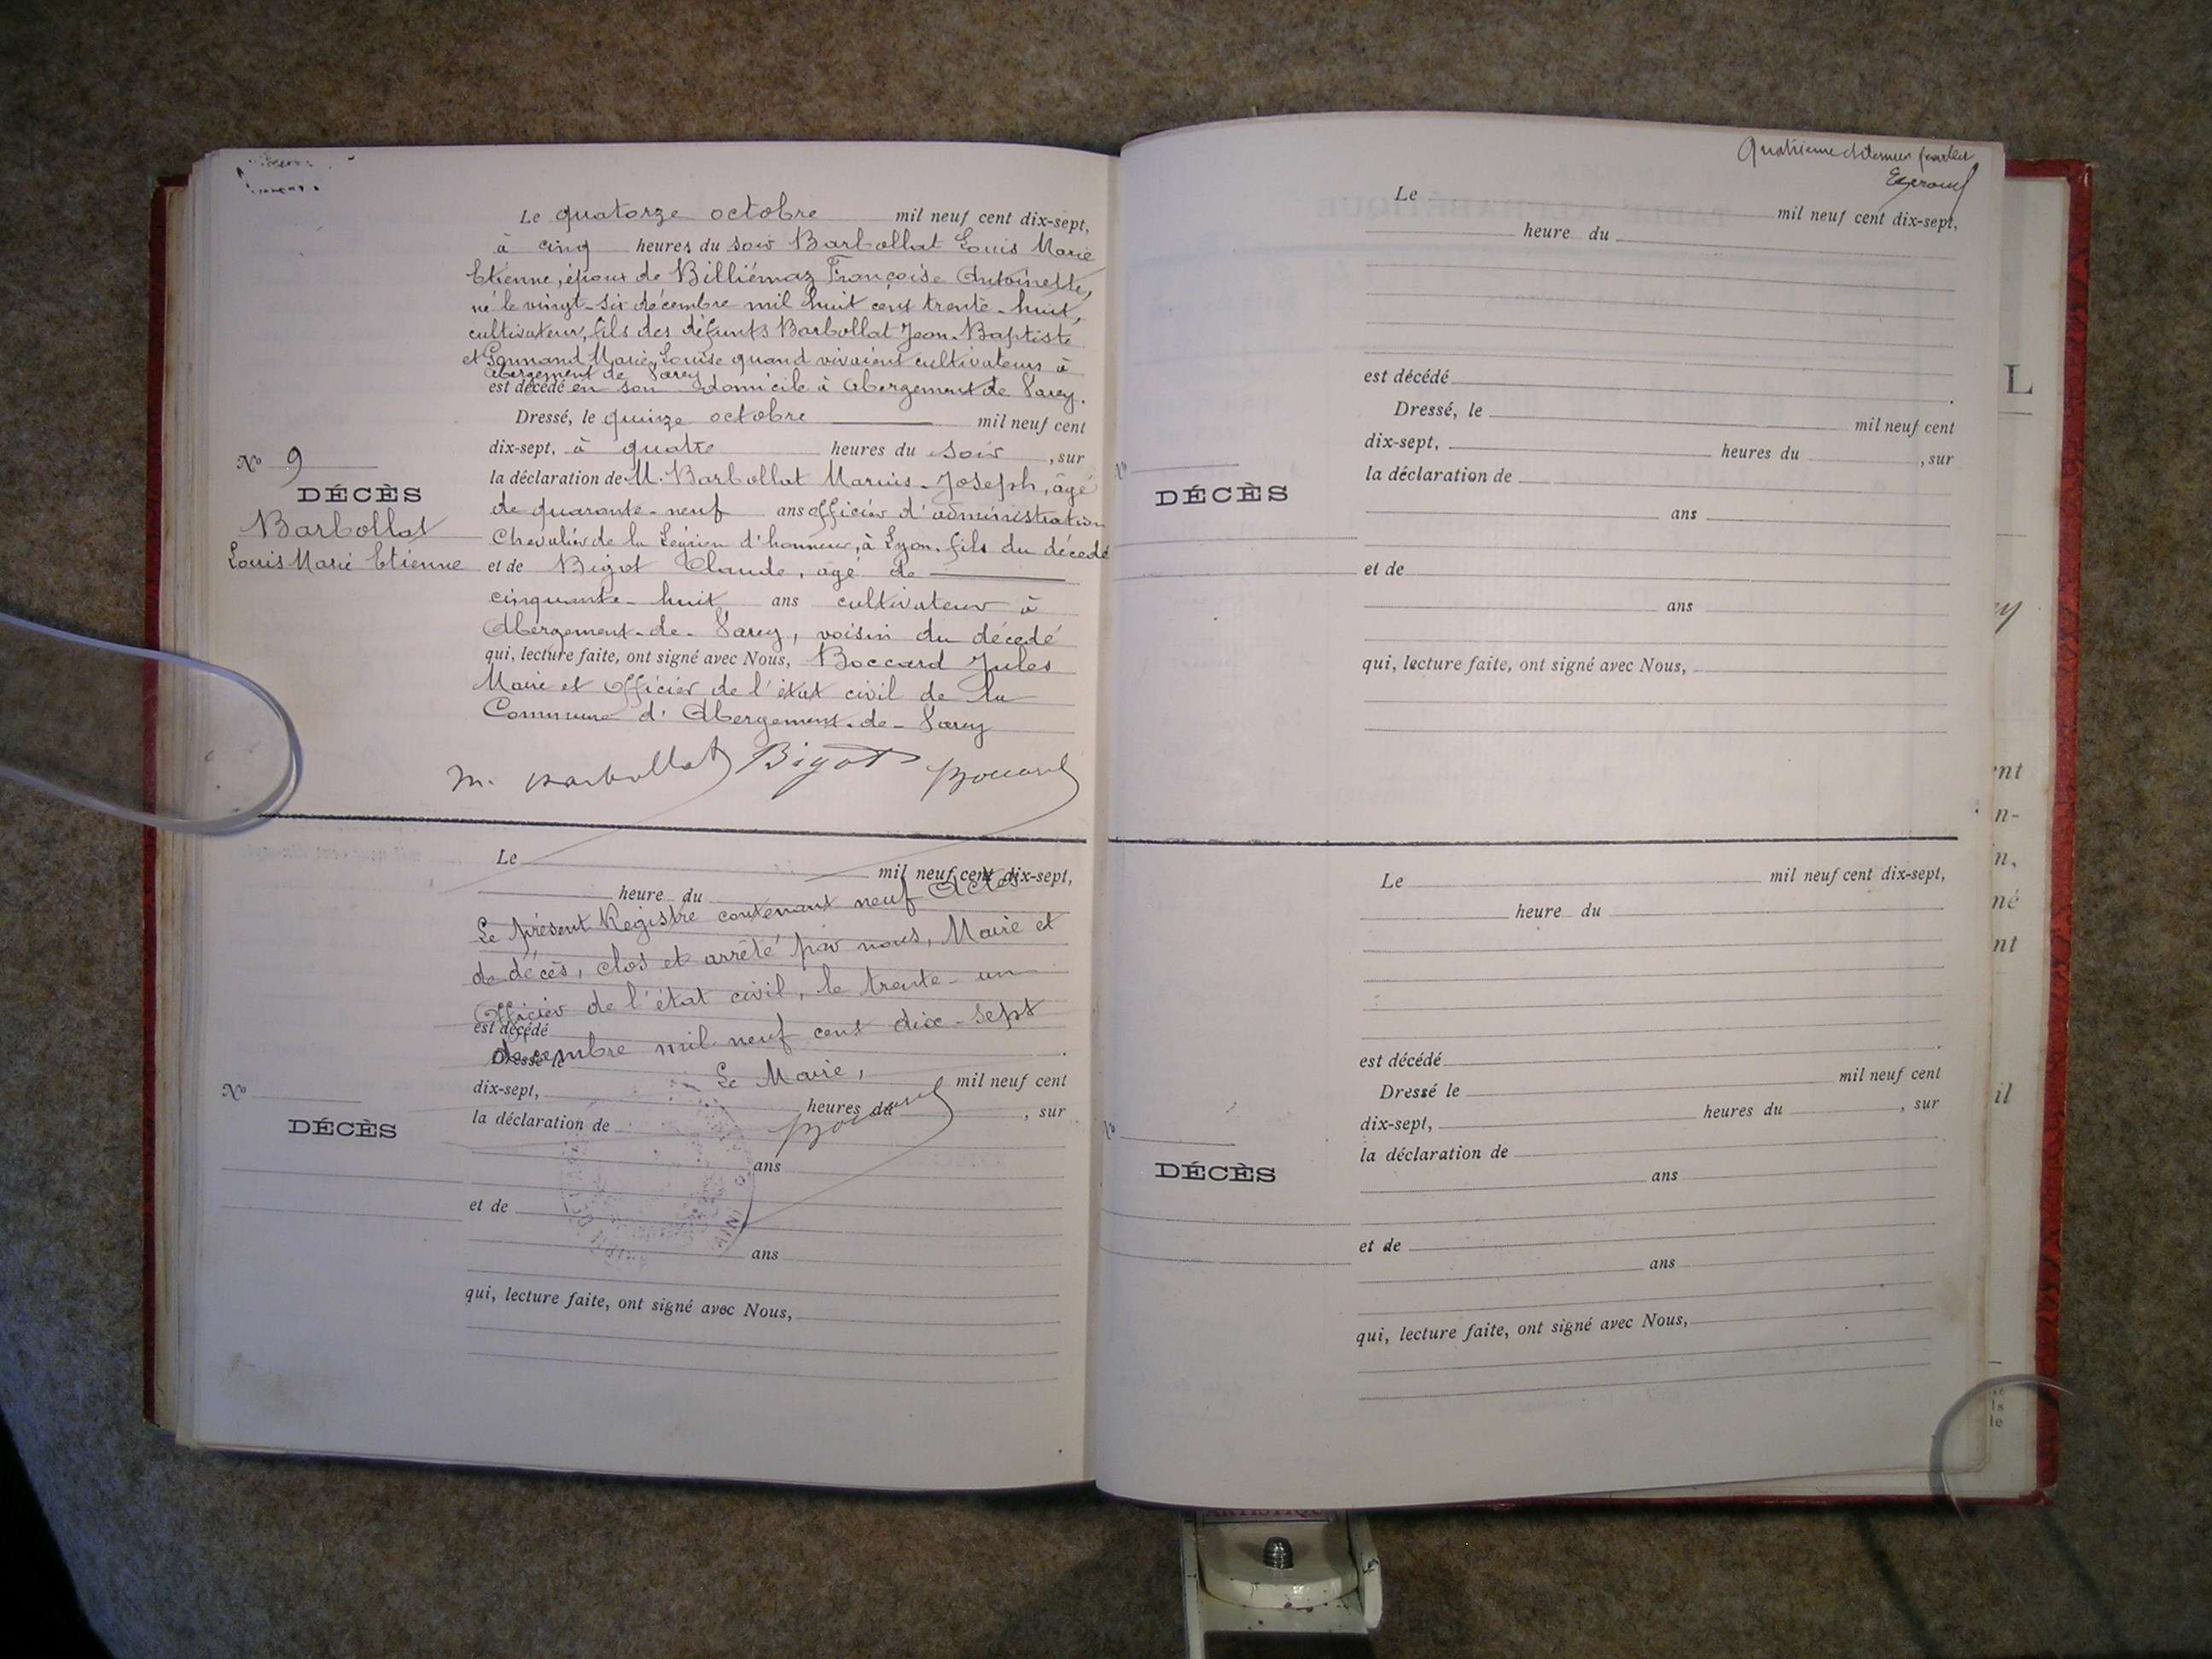 Le quatorze octobre mil neuf cent dix-sept,
à cinq heures du soir Barbollat Louis Marie
Etienne, époux de Billiémaz Françoise Antoinette,
né le vingt-six décembre mil huit cent trente-huit,
cultivateur, fils des défunts Barbollat Jean-Baptiste
et Marie Louise quand vivaient cultivateurs à
Abergement de Varey
est décédé en son domicile à Abergement de Varey.
Dressé, le quinze octobre mil neuf cent
dix-sept, à quatre heures du soir, sur
la déclaration de M. Barbollat Marius-Joseph, âgé
de quarante-neuf ans officier d'administration
Chevalier de la Légion d'honneur, à Lyon. fils du décédé
et de Bigot Claude, âgé de
cinquante-huit ans cultivateur à
Abergement-de-Varey, voisin du décédé
qui, lecture faite, ont signé avec Nous, Boccard Jules
Maire et Officier de l'état civil de la
Commune d'Abergement-de-Varey
M. Barbollat Bigot Boccard
No 9
DÉCÈS
Barbollat
Louis Marie Etienne
Le mil neuf cent dix-sept,
heure du
Le présent Registre contenant neuf Actes
de décès, clos et arrêté par nous, Maire et
Officier de l'état civil, le trente-un
est décédé
décembre mil neuf cent dix-sept
Dressé le
Le Maire,
mil neuf cent
dix-sept, heures du , sur
Boccard
la déclaration de
ans
et de
ans
qui, lecture faite, ont signé avec Nous,
No
DÉCÈS
Quatrième et dernier feuillet
Le mil neuf cent dix-sept,
heure du
est décédé
Dressé, le mil neuf cent
dix-sept, heures du , sur
la déclaration de
ans
et de
ans
qui, lecture faite, ont signé avec Nous,
DÉCÈS
Le mil neuf cent dix-sept,
heure du
est décédé
Dressé le mil neuf cent
dix-sept, heures du , sur
la déclaration de
ans
et de
ans
qui, lecture faite, ont signé avec Nous,
DÉCÈS